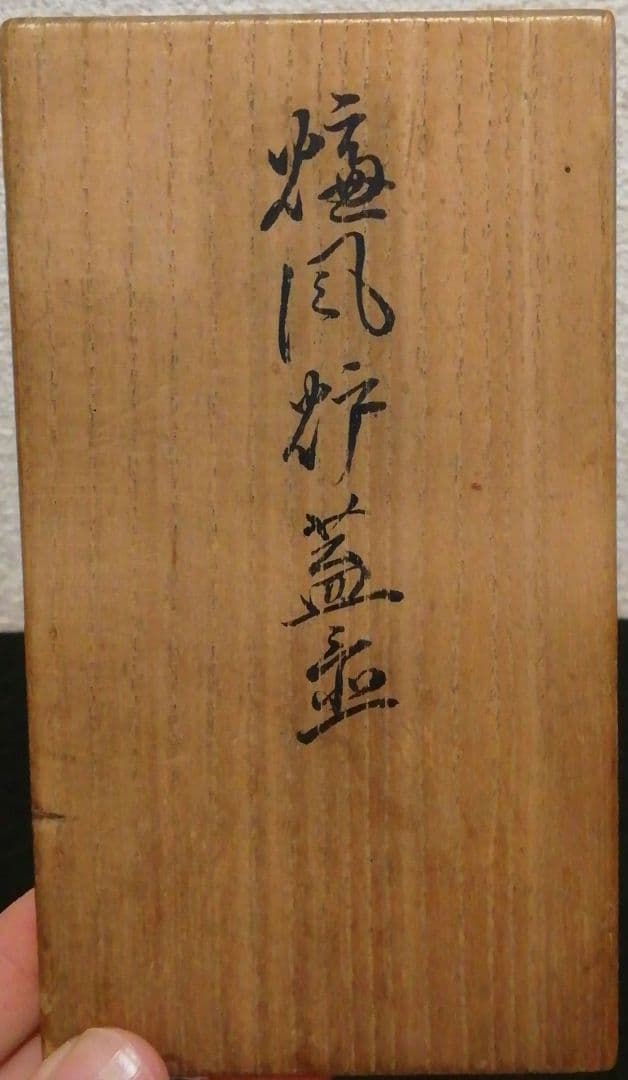 爐風炉蓋置